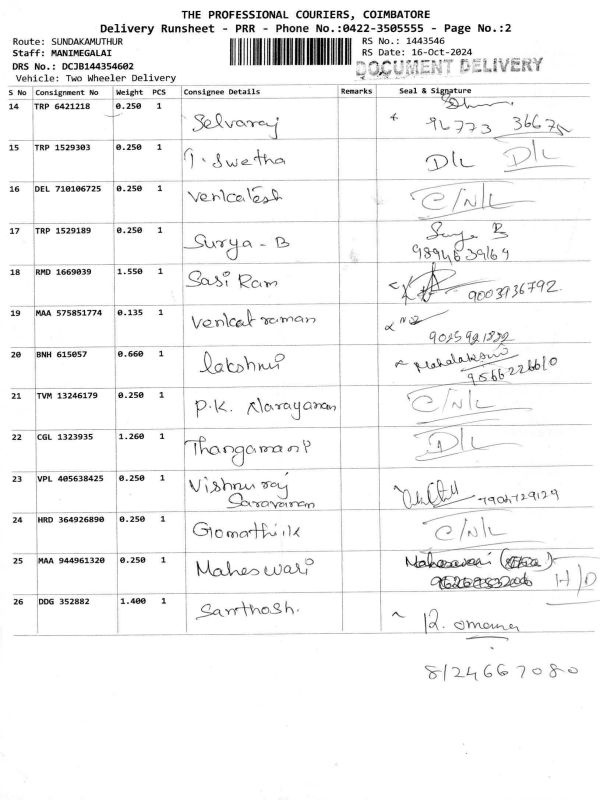 THE PROFESSIONAL COURIERS, COIMBATORE
Delivery Runsheet - PRR - Phone No.:0422-3505555 - Page No.:2
Route: SUNDAKAMUTHUR RS No.: 1443546
Staff: MANIMEGALAI RS Date: 16-Oct-2024
DRS No.: DCJB144354602 DOCUMENT DELIVERY
Vehicle: Two Wheeler Delivery
S No Consignment No Weight PCS Consignee Details Remarks Seal & Signature
14 TRP 6421218 0.250 1 Selvaraj 96773 36675
15 TRP 1529303 0.250 1 T. Swetha D/L D/L
16 DEL 710106725 0.250 1 Venkatesh C/N/L
17 TRP 1529189 0.250 1 Surya - B Surya B
9894639164
18 RMD 1669039 1.550 1 Sasi Ram 9003936792
19 MAA 575851774 0.135 1 Venkat raman
20 BNH 615057 0.660 1 lakshmi Mahalakshmi
9566226610
21 TVM 13246179 0.250 1 P.K. Narayanan C/N/L
22 CGL 1323935 1.260 1 Thangamani D/L
23 VPL 405638425 0.250 1 Vishnu raj
Saravanan 7904729129
24 HRD 364926890 0.250 1 Gomathi.K C/N/L
25 MAA 944961320 0.250 1 Maheswari Maheswari
H/D
26 DDG 352882 1.400 1 Santhosh. R. omana
8124667080